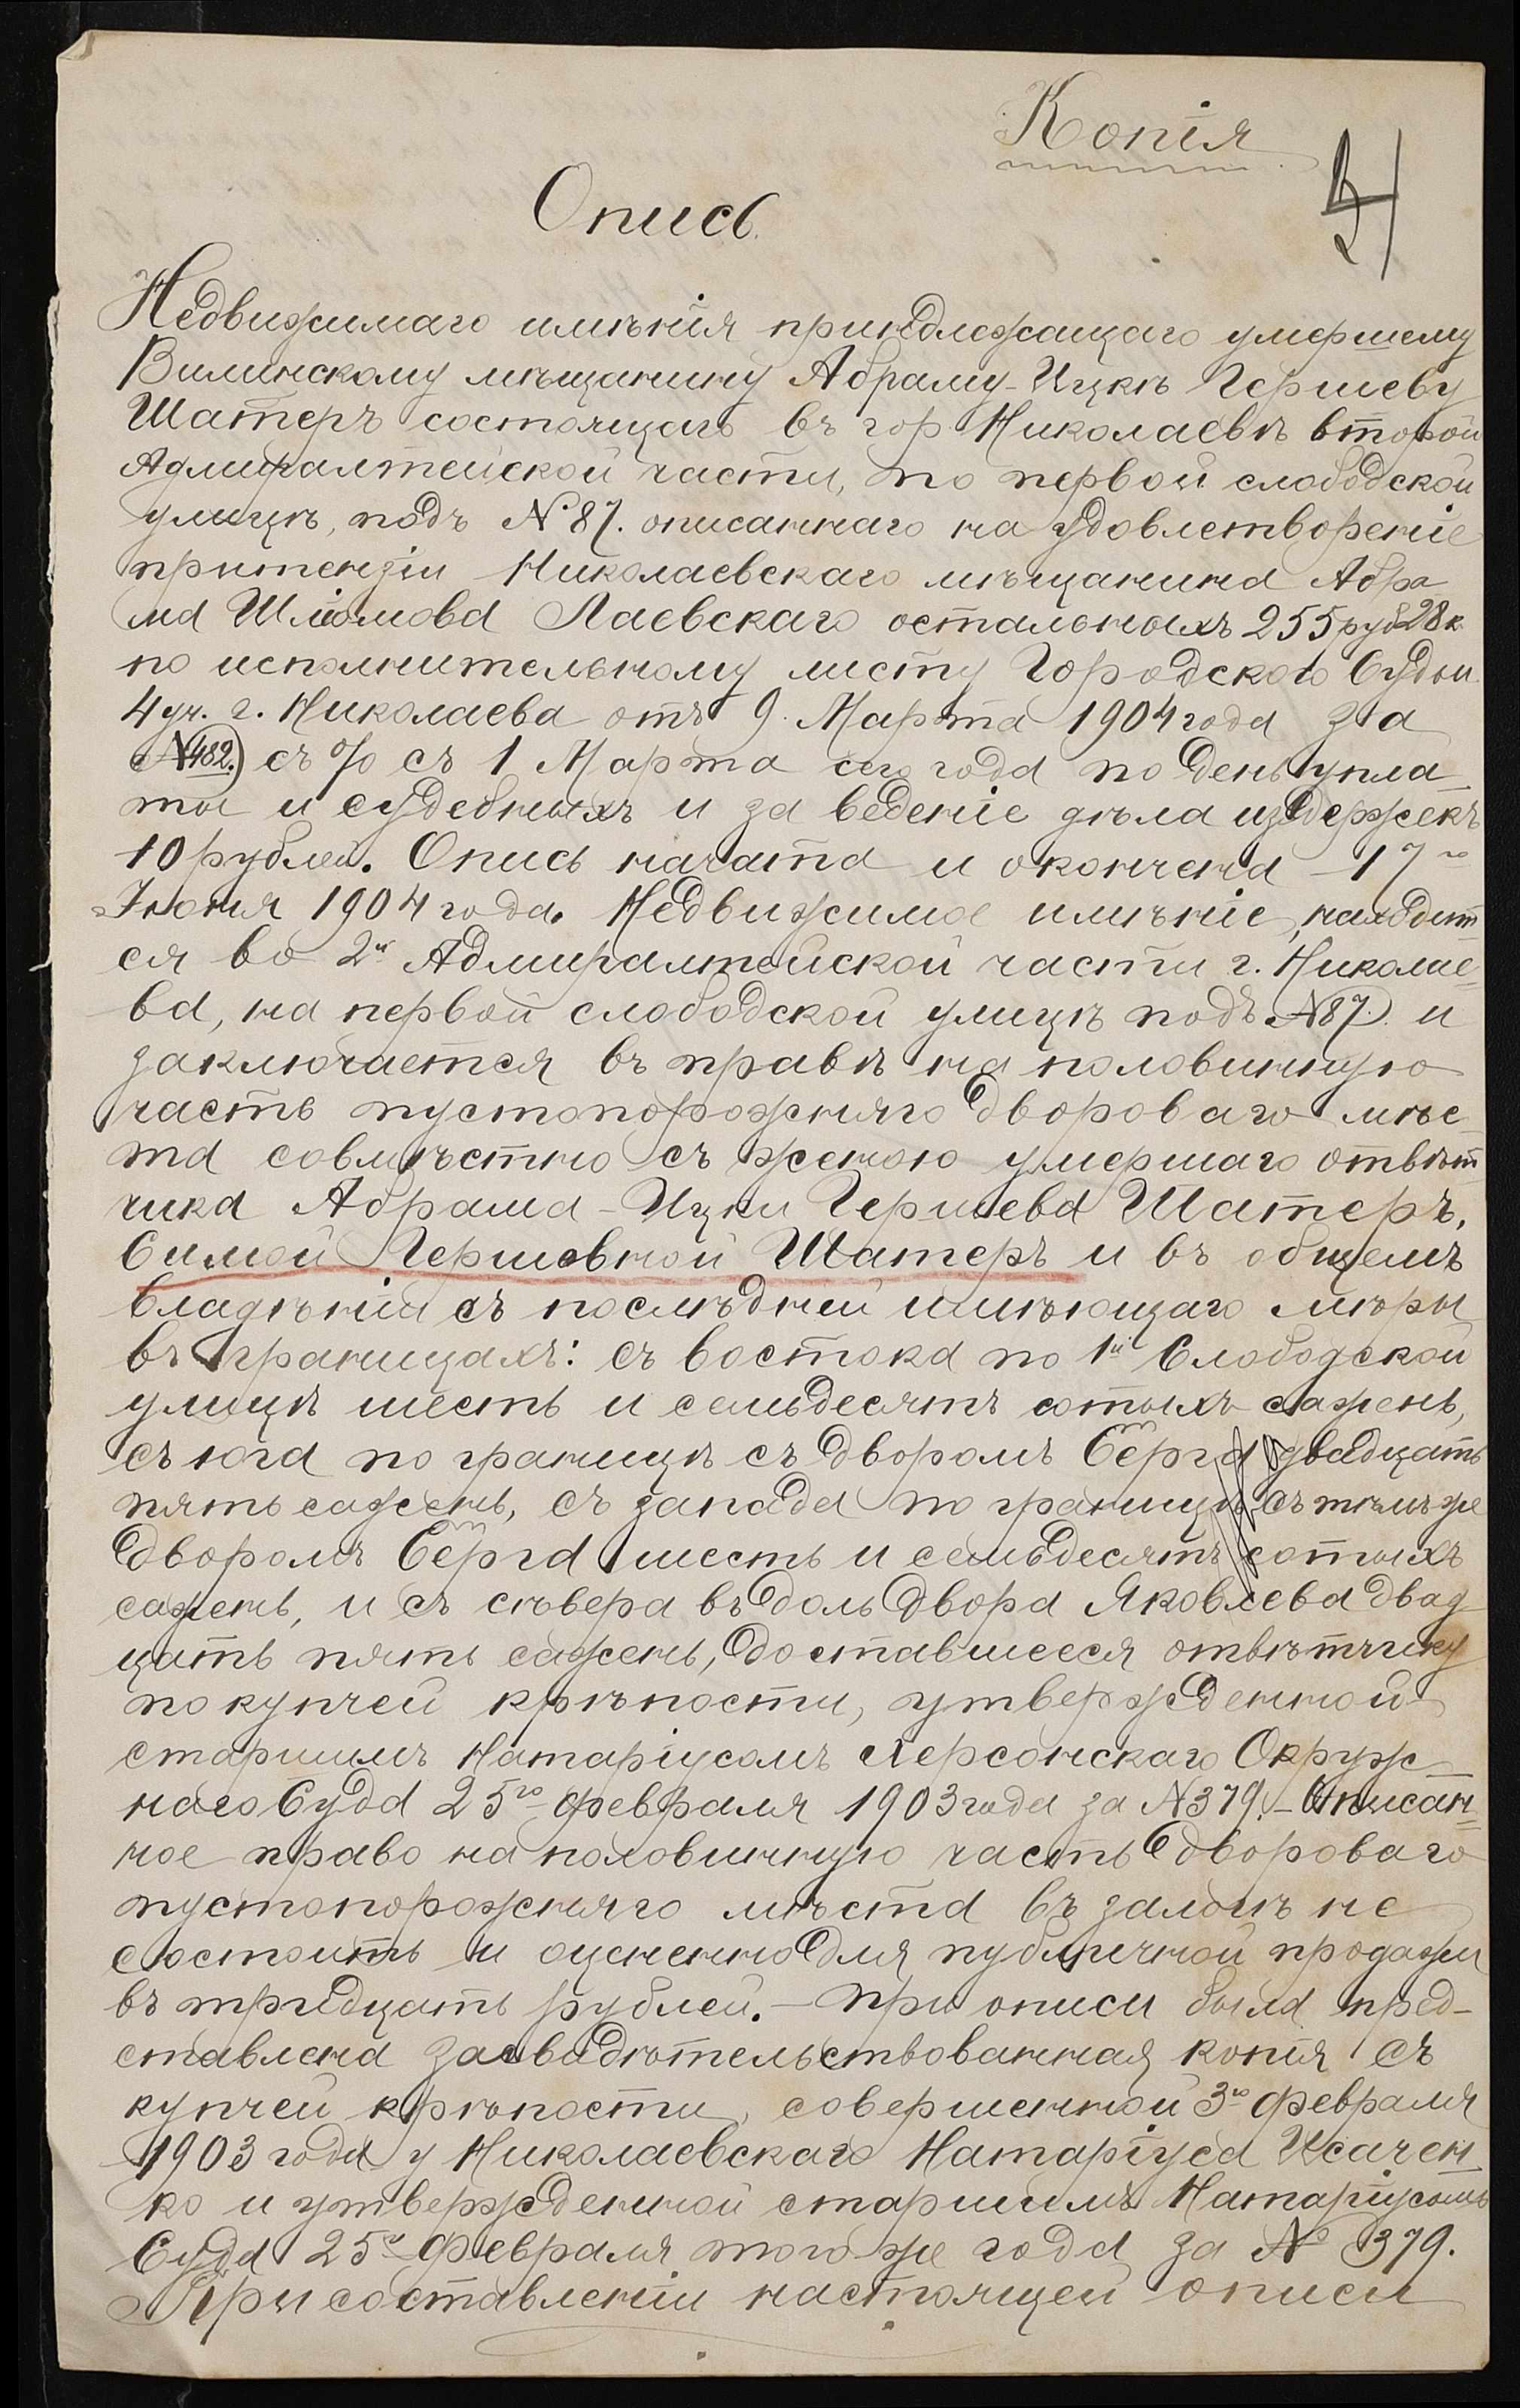 Копія
Опись
Недвижимаго имѣнія принадлежащаго умершему
Вилинскому мѣщанину Абраму-Ицкѣ Гершеву
Шатеръ состоящаго въ гор Николаевѣ второй
Адмиралтейской части, по первой слободской
улицѣ, подъ №87. описаннаго на удовлетвореніе
притензіи Николаевскаго мѣщанина Абра
ма Шліомова Лаевскаго остальныхъ 255 руб 28 к
по исполнительному листу Городского Судьи
4 уч. г. Николаева отъ 9 Марта 1904 года за
№482.) съ % съ 1 Марта сего года по день упла
ты и судебныхъ и за веденіе дѣла издержекъ
10 рублей. Опись начата и окончена 17го
Іюня 1904 года. Недвижимое имѣніе, находит
ся во 2й Адмиралтейской части г. Николае
ва, на первой слободской улицѣ подъ №87. и
заключается въ правѣ на половинную
часть пустопорожняго двороваго мѣс
та совмѣстно съ женою умершаго отвѣт
чика Абрама-Ицки Гершева Шатеръ,
Симой Гершовной Шатеръ и въ общемъ
владѣніи съ послѣдней имѣющаго мѣры
въ границахъ: съ востока по 1й Слободской
улицѣ шесть и семьдесятъ сотыхъ сажень,
съ юга по границѣ съ дворомъ Сёрга двадцать
пять сажень, съ запада по границѣ съ тѣмъ же
дворомъ Сёрга шесть и семьдесятъ сотыхъ
сажень, и съ сѣвера въ доль двора Яковлева двад
цать пять сажень, доставшееся отвѣтчику
по купчей крѣпости, утвержденной
старшимъ Натаріусомъ Херсонскаго Окруж
наго Суда 25го февраля 1903 года за №379.- Описан
ное право на половинную часть двороваго
пустопорожняго мѣста въ залогѣ не
состоитъ и оцененно для публичной продажи
въ тридцать рублей.- При описи была пред-
ставлена засвидѣтельствованная копія съ
купчей крѣпости, совершенной 3го февраля
1903 года у Николаевскаго Натаріуса Исачен
ко и утвержденной старшимъ Натаріусомъ
Суда 25го февраля того-же года за № 379.
При составленіи настоящей описи